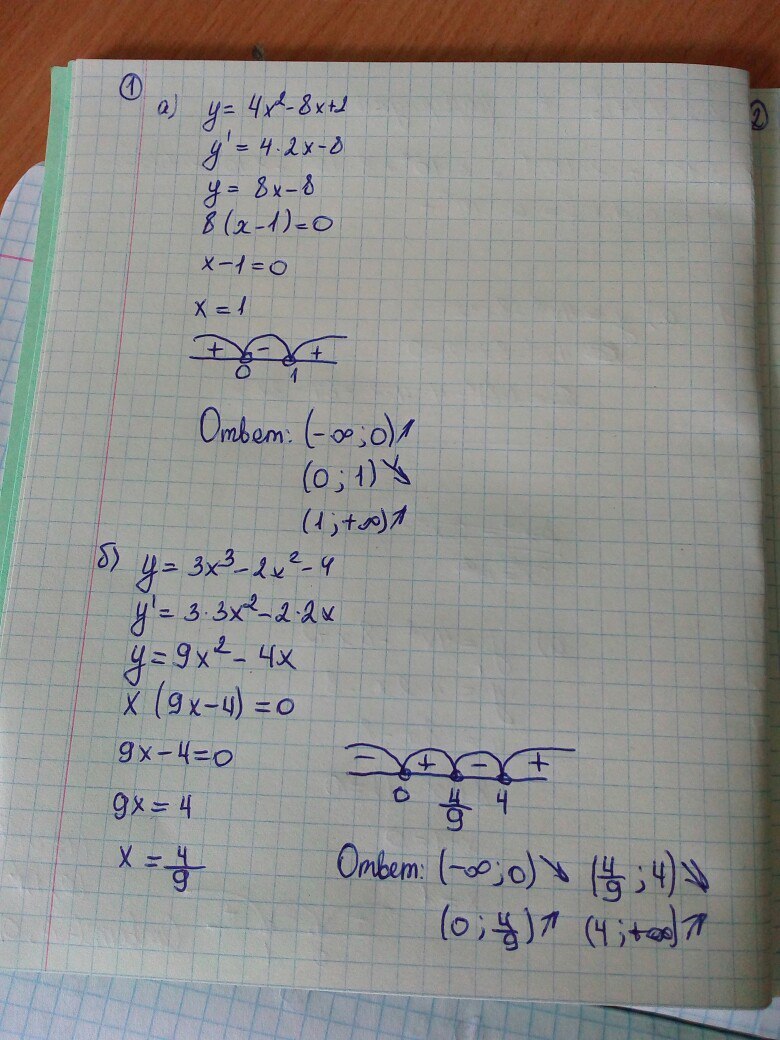 ①
а) y = 4x²-8x+2
y' = 4·2x-8
y = 8x-8
8(x-1)=0
x-1=0
x = 1
+ - +
0 1
Ответ: (-∞;0)↗
(0;1)↘
(1;+∞)↗
б) y = 3x³-2x²-4
y' = 3·3x²-2·2x
y = 9x²-4x
x (9x-4) = 0
9x-4=0
9x = 4
x = 4/9
- + - +
0 4/9 4
Ответ: (-∞;0)↘ (4/9;4)↘
(0;4/9)↗ (4;+∞)↗
②